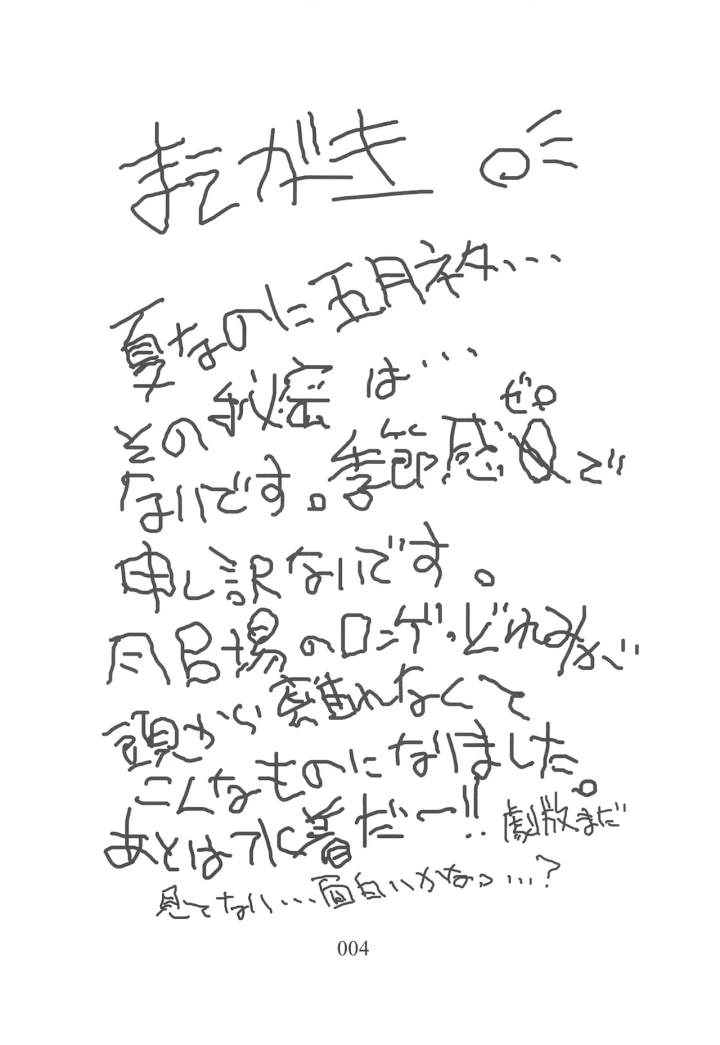 まえがき
夏なのに五月ネタ…
その秘密は…
ないです。季節感ゼロで
申し訳ないです。
風呂場のロンゲ・どれみが
頭から離れなくて
こんなものになりました。
あとは水着だー!!
劇散まだ
見てない…面白いかなっ…?
004